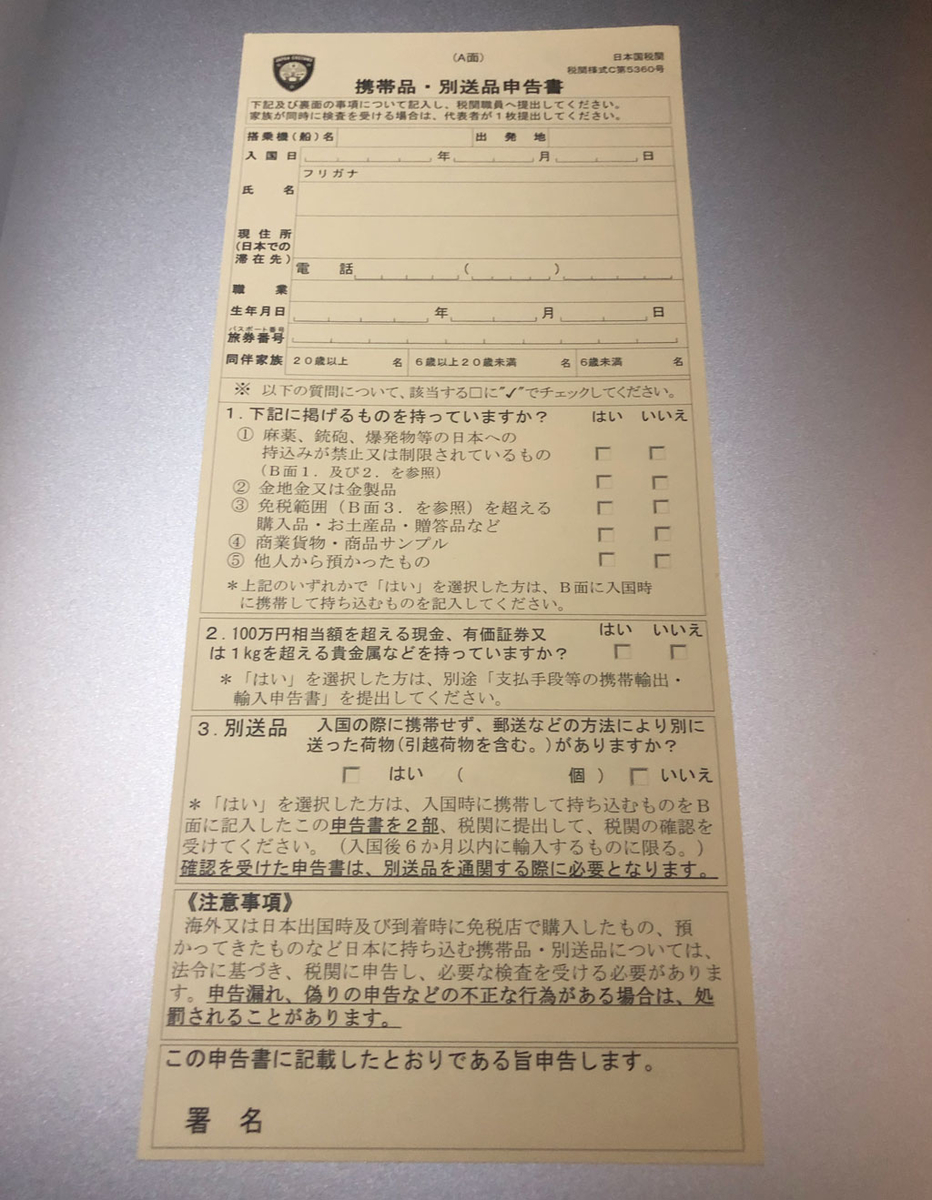 JAPAN CUSTOMS
（A面）
日本国税関
税関様式C第5360号
携帯品・別送品申告書
下記及び裏面の事項について記入し、税関職員へ提出してください。
家族が同時に検査を受ける場合は、代表者が1枚提出してください。
搭乗機（船）名 出発地
入国日 年 月 日
フリガナ
氏名
現住所
（日本での
滞在先）
電話 （ ）
職業
生年月日 年 月 日
パスポート番号
旅券番号
同伴家族 20歳以上 名 6歳以上20歳未満 名 6歳未満 名
※ 以下の質問について、該当する□に"✓"でチェックしてください。
1．下記に掲げるものを持っていますか？ はい いいえ
① 麻薬、銃砲、爆発物等の日本への
持込みが禁止又は制限されているもの
（B面1．及び2．を参照）
② 金地金又は金製品
③ 免税範囲（B面3．を参照）を超える
購入品・お土産品・贈答品など
④ 商業貨物・商品サンプル
⑤ 他人から預かったもの
＊上記のいずれかで「はい」を選択した方は、B面に入国時
に携帯して持ち込むものを記入してください。
2．100万円相当額を超える現金、有価証券又 はい いいえ
は1kgを超える貴金属などを持っていますか？
＊「はい」を選択した方は、別途「支払手段等の携帯輸出・
輸入申告書」を提出してください。
3．別送品 入国の際に携帯せず、郵送などの方法により別に
送った荷物（引越荷物を含む。）がありますか？
はい （ 個） いいえ
＊「はい」を選択した方は、入国時に携帯して持ち込むものをB
面に記入したこの申告書を2部、税関に提出して、税関の確認を
受けてください。（入国後6か月以内に輸入するものに限る。）
確認を受けた申告書は、別送品を通関する際に必要となります。
《注意事項》
海外又は日本出国時及び到着時に免税店で購入したもの、預
かってきたものなど日本に持ち込む携帯品・別送品については、
法令に基づき、税関に申告し、必要な検査を受ける必要がありま
す。申告漏れ、偽りの申告などの不正な行為がある場合は、処
罰されることがあります。
この申告書に記載したとおりである旨申告します。
署名